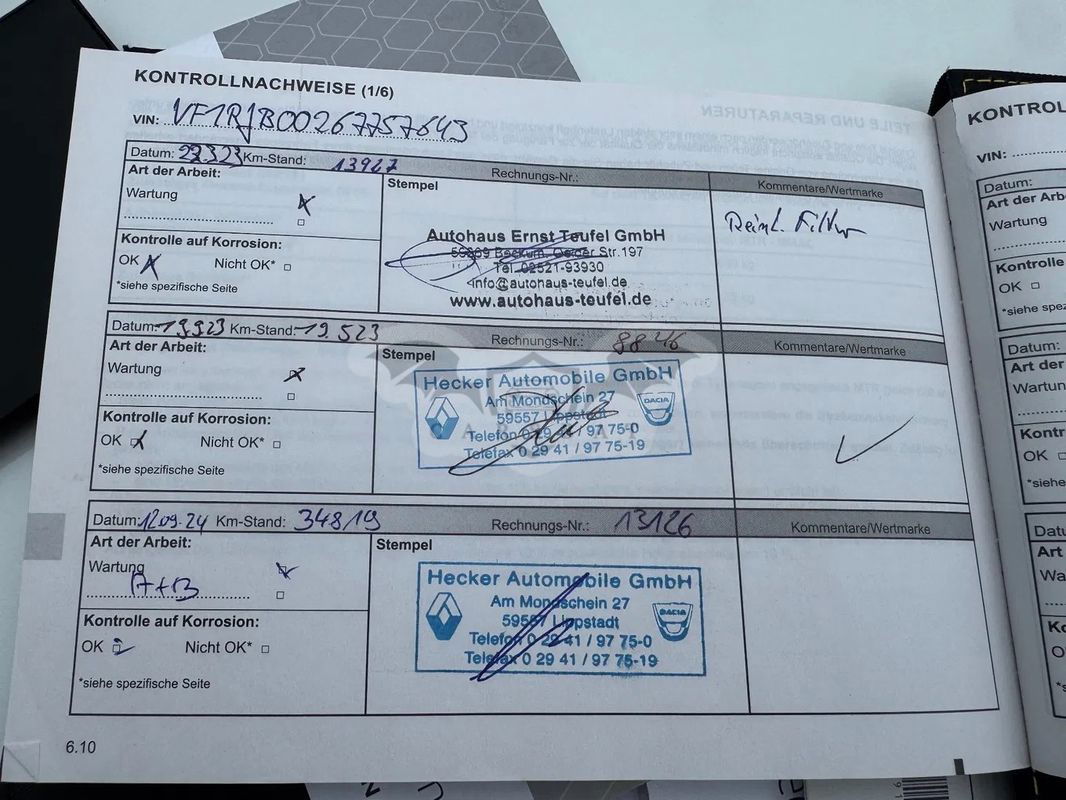 KONTROLLNACHWEISE (1/6)
VIN: VF1RJB00267757643
Datum: Km-Stand: 13967 Rechnungs-Nr.:
Art der Arbeit: Stempel Kommentare/Wertmarke
Wartung
Autohaus Ernst Teufel GmbH
59269 Beckum, Oelder Str.197
Tel. 02521-93930
info@autohaus-teufel.de
www.autohaus-teufel.de
Filter
Kontrolle auf Korrosion:
OK Nicht OK*
*siehe spezifische Seite
Datum: 19.9.23 Km-Stand: 19.523 Rechnungs-Nr.: 8846
Art der Arbeit: Stempel Kommentare/Wertmarke
Wartung
Hecker Automobile GmbH
Am Mondschein 27
59557 Lippstadt
Telefon 0 29 41 / 97 75-0
Telefax 0 29 41 / 97 75-19
DACIA
Kontrolle auf Korrosion:
OK Nicht OK*
*siehe spezifische Seite
Datum: 12.09.24 Km-Stand: 34819 Rechnungs-Nr.: 13126
Art der Arbeit: Stempel Kommentare/Wertmarke
Wartung
A+B
Hecker Automobile GmbH
Am Mondschein 27
59557 Lippstadt
Telefon 0 29 41 / 97 75-0
Telefax 0 29 41 / 97 75-19
DACIA
Kontrolle auf Korrosion:
OK Nicht OK*
*siehe spezifische Seite
6.10
TEILE UND REPARATUREN
KONTROL
VIN:
Datum:
Art der Arb
Wartung
Kontrolle
OK
*siehe spez
Datum:
Art der
Wartun
Kontr
OK
*siehe
Datu
Art
Wa